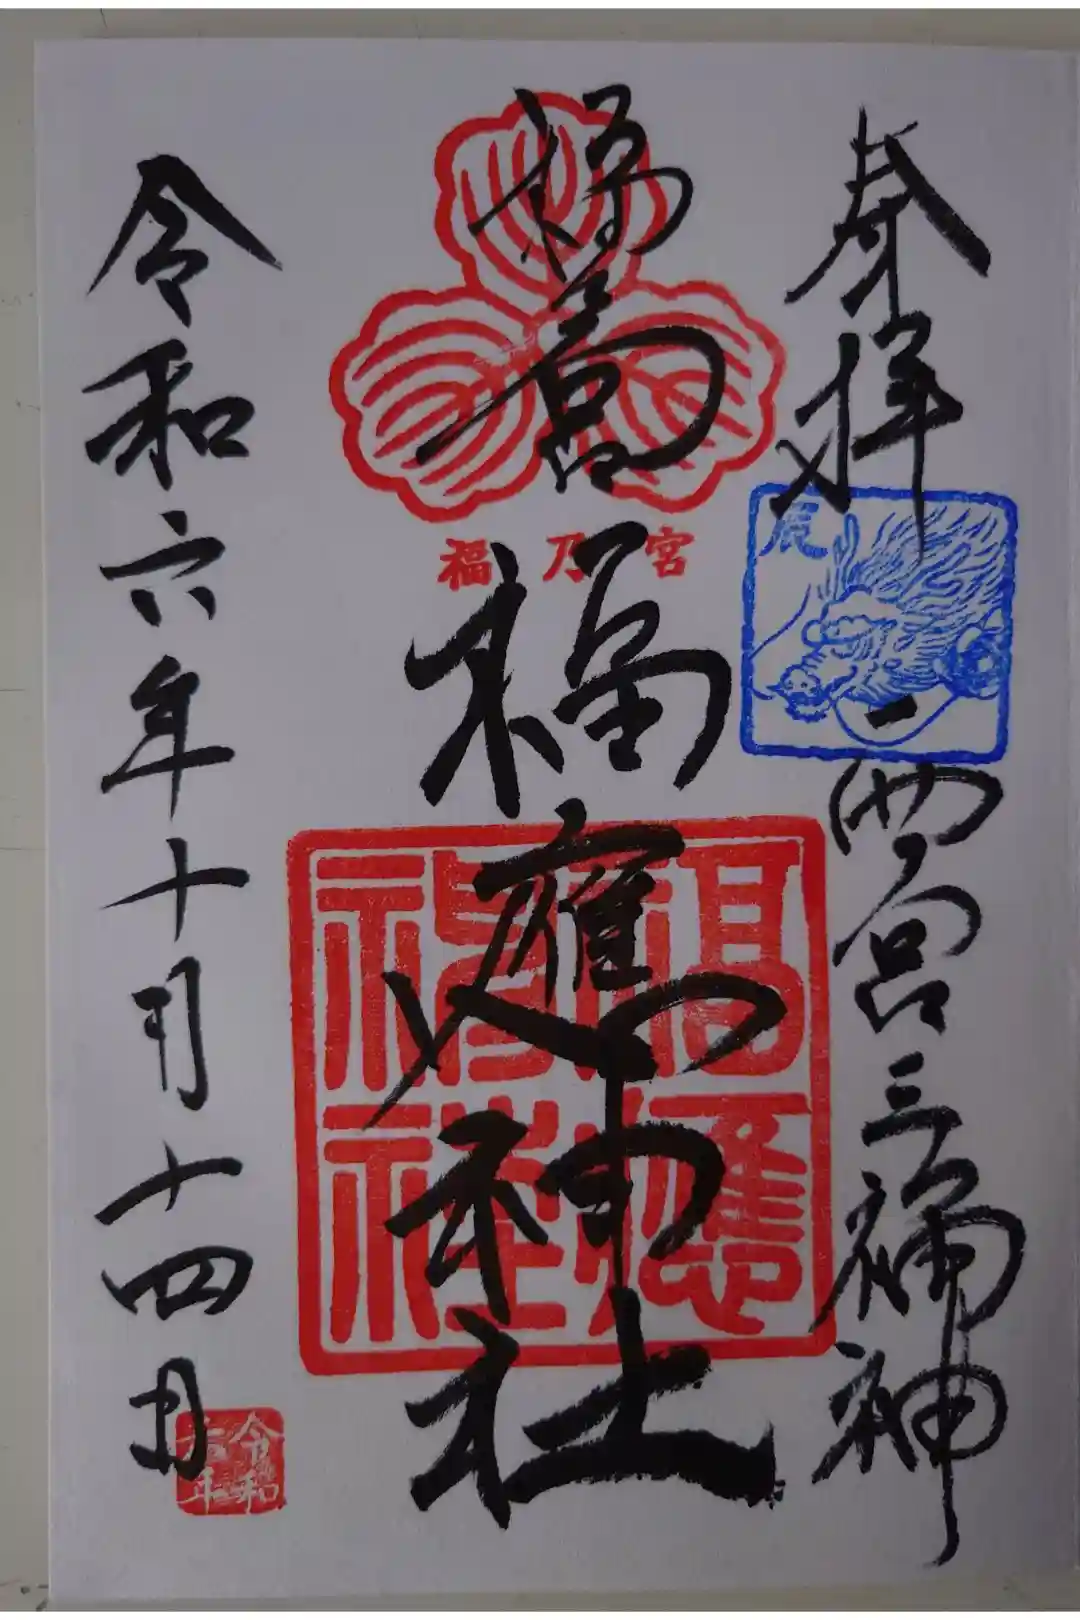 奉拝
辰
西宮三福神
福乃宮
福應神社
福應神社
令和六年十月十四日
令和六年